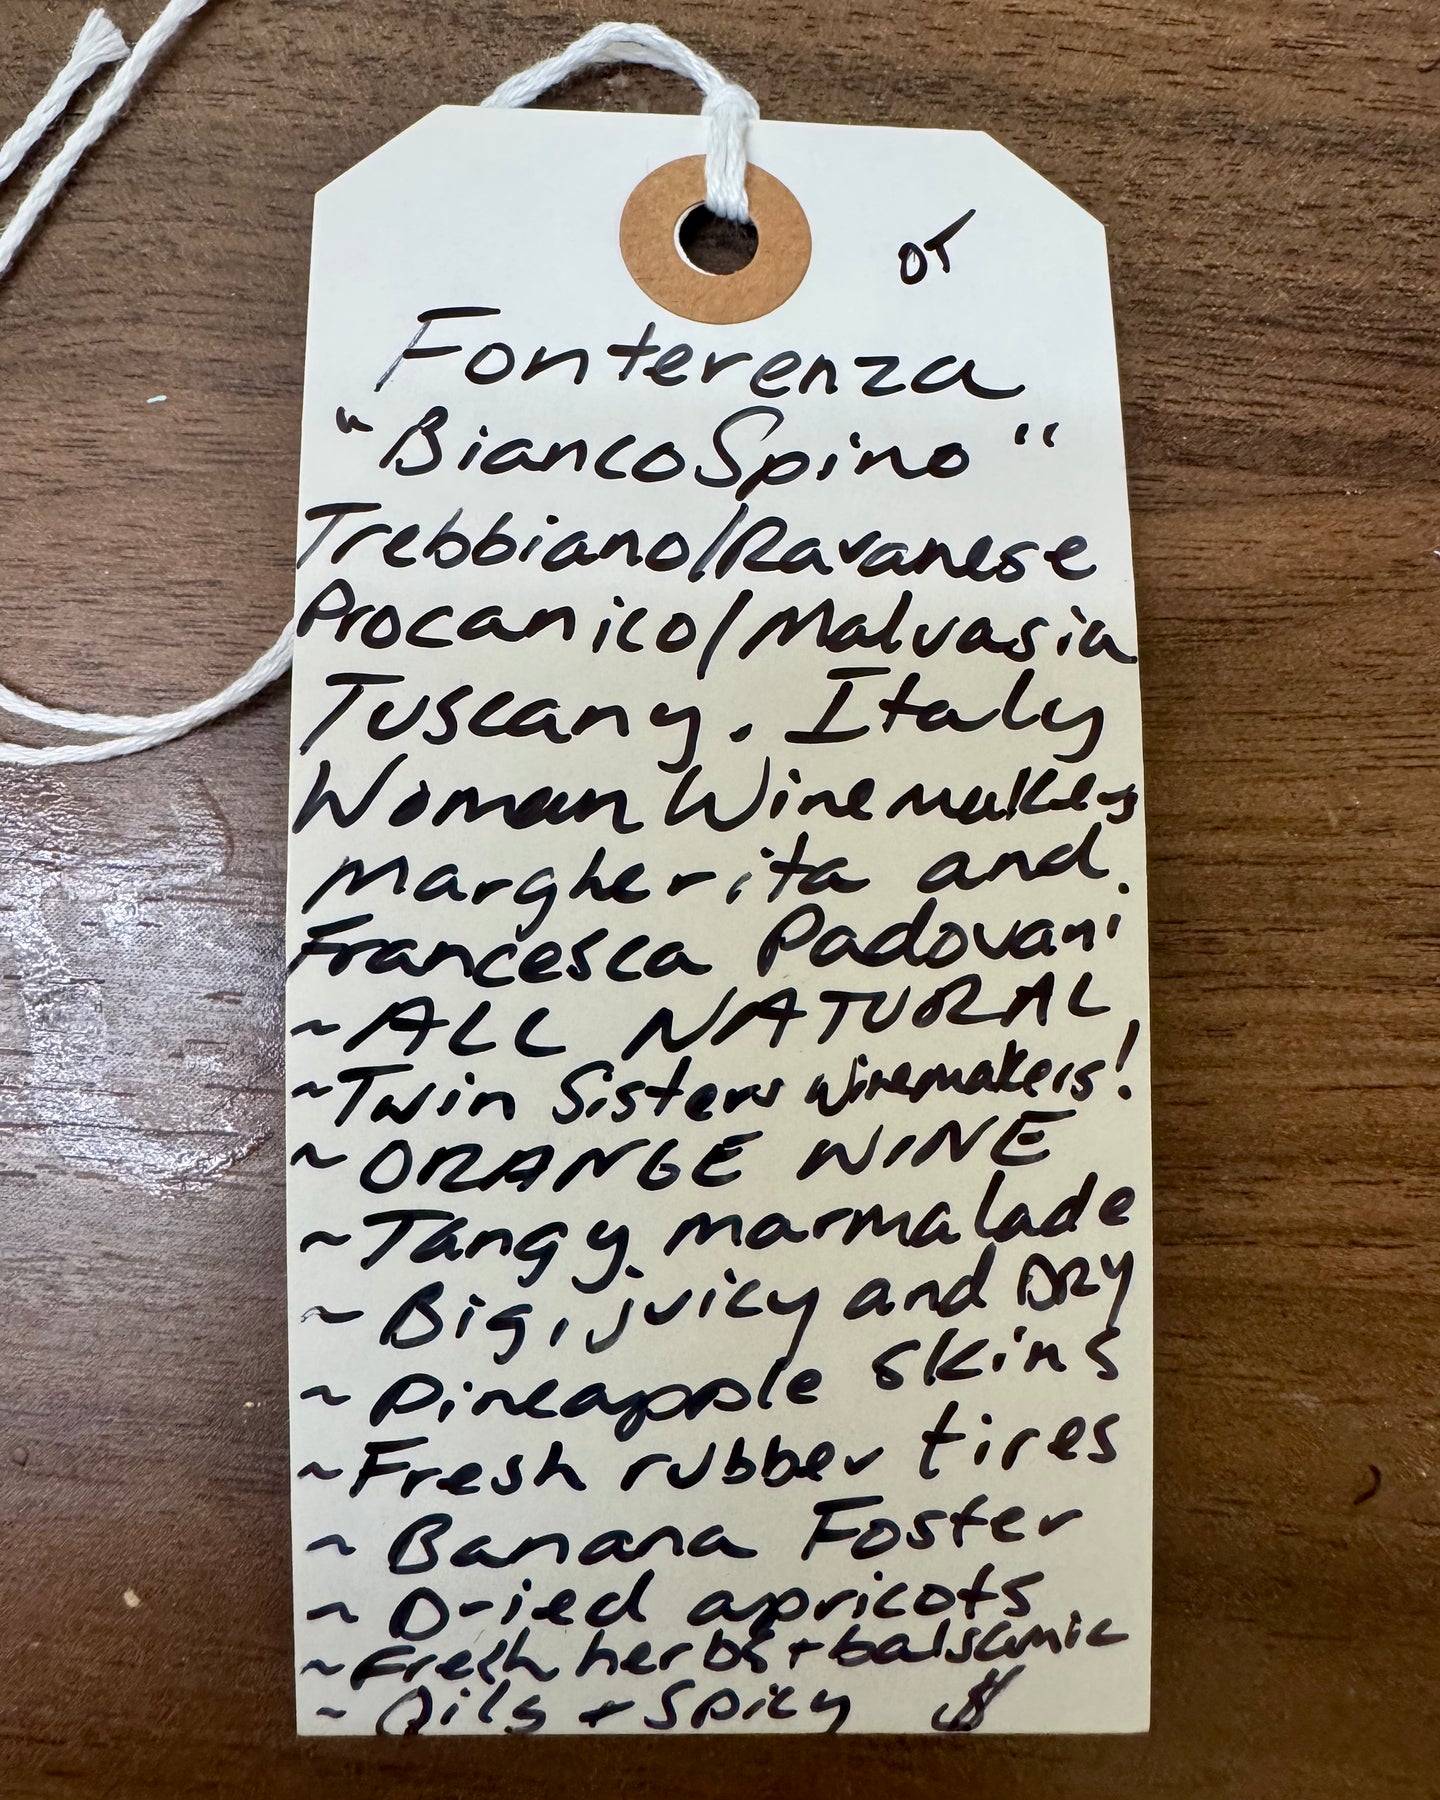 OT
Fonterenza
"BiancoSpino"
Trebbiano/Ravanese
Procanico/Malvasia
Tuscany. Italy
Woman Winemakers
Margherita and
Francesca Padovani
~ALL NATURAL
~Twin Sisters winemakers!
~ORANGE WINE
~Tangy marmalade
~Big, juicy and DRY
~Pineapple skins
~Fresh rubber tires
~Banana Foster
~Dried apricots
~Fresh herbs + balsamic
~Oily + spicy